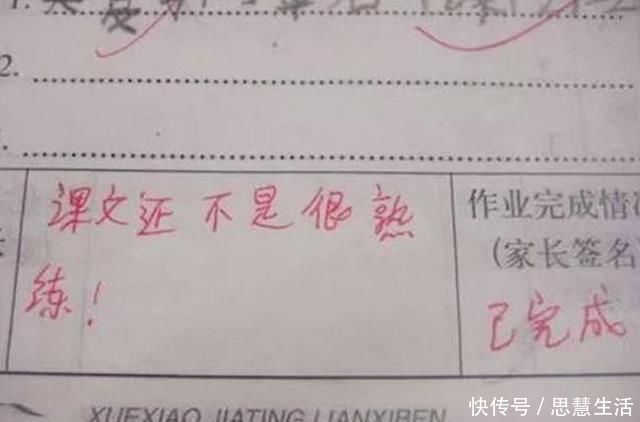 2.
课文还不是很熟
练!
作业完成情
(家长签名
已完成
XUEXIAO JIATING LIANXIBEN
快传号/思慧生活